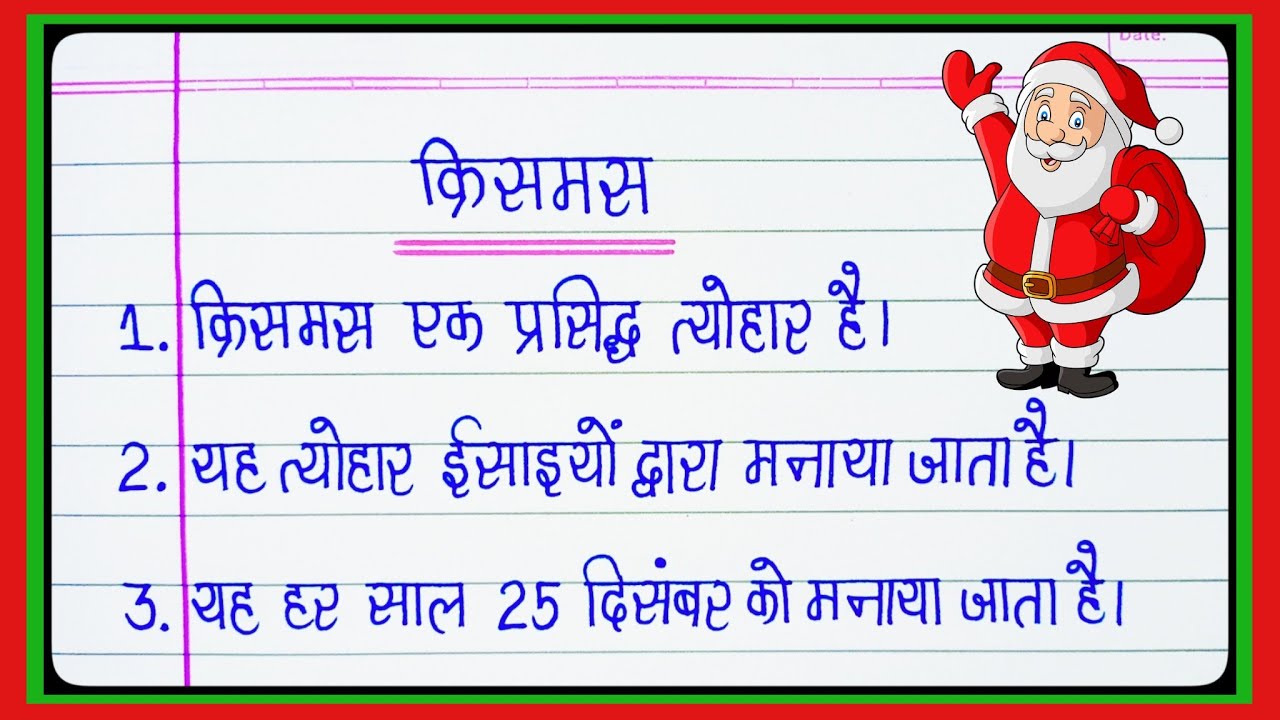 Date:
क्रिसमस
1. क्रिसमस एक प्रसिद्ध त्योहार है।
2. यह त्योहार ईसाइयों द्वारा मनाया जाता है।
3. यह हर साल 25 दिसंबर को मनाया जाता है।